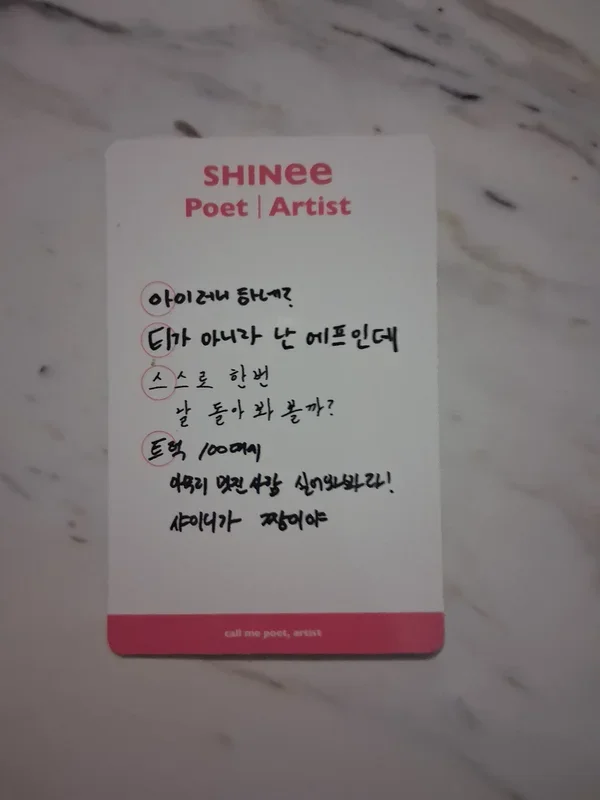 SHINee
Poet | Artist
아이러니 하네?
티가 아니라 난 에프인데
스스로 한번
날 돌아 봐 볼까?
트럭 100대에
아무리 멋진 사람 실어와봐라!
샤이니가 짱이야
call me poet, artist